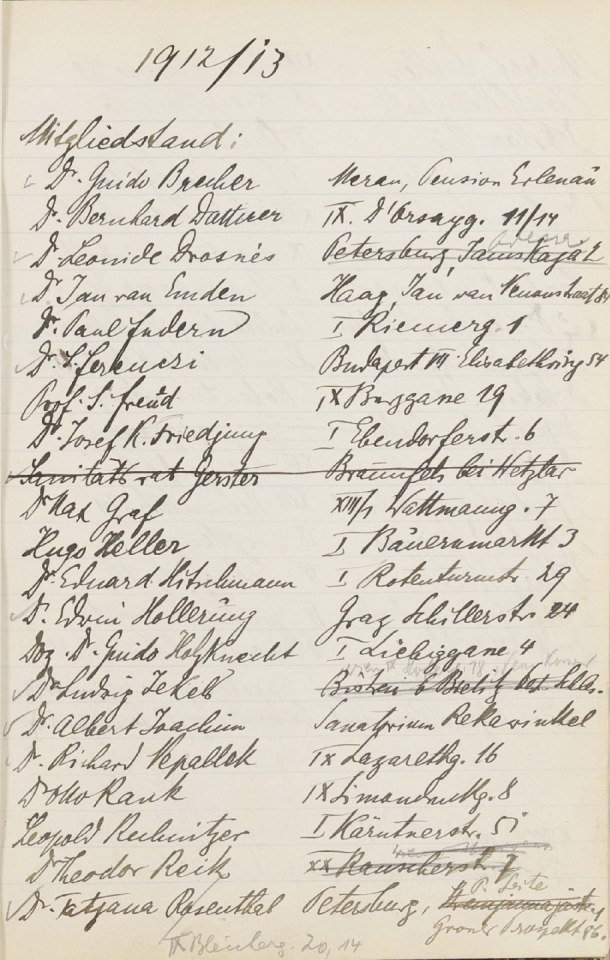 1912/13
Mitgliedstand:
Dr. Guido Brecher Meran, Pension Erlenau
Dr. Bernhard Dattner IX. D'Orsayg. 11/14
Dr. Leonide Drosnés Petersburg, 2
Odessa
Dr. Jan van Emden Haag, Jan van 84
Dr. Paul Federn I Riemerg. 1
Dr. S. Ferenczi Budapest VII Elisabethring 54
Prof. S. Freud IX Berggasse 19
Dr. Josef K. Friedjung I Ebendorferstr. 6
Sanitätsrat Gerster Braunfels bei Wetzlar
Dr Max Graf XIII/1 Wattmanng. 7
Hugo Heller I Bauernmarkt 3
Dr. Eduard Hitschmann I Rotenturmstr. 29
Dr. Edwin Hollerung Graz Schillerstr. 24
Doz. Dr. Guido Holzknecht I Liebiggasse 4
Dr Ludwig Jekels Bistrai b Bielitz öst. Schl.
Dr. Albert Joachim Sanatorium Rekawinkel
Dr. Richard Nepallek IX Lazarethg. 16
Dr Otto Rank IX Simondenkg. 8
Leopold Rechnitzer I Kärntnerstr. 51
Dr Theodor Reik XX Rauscherstr. 7
P. Seite
Dr. Tatjana Rosenthal Petersburg,
Großer Prospekt 86.
20, 14